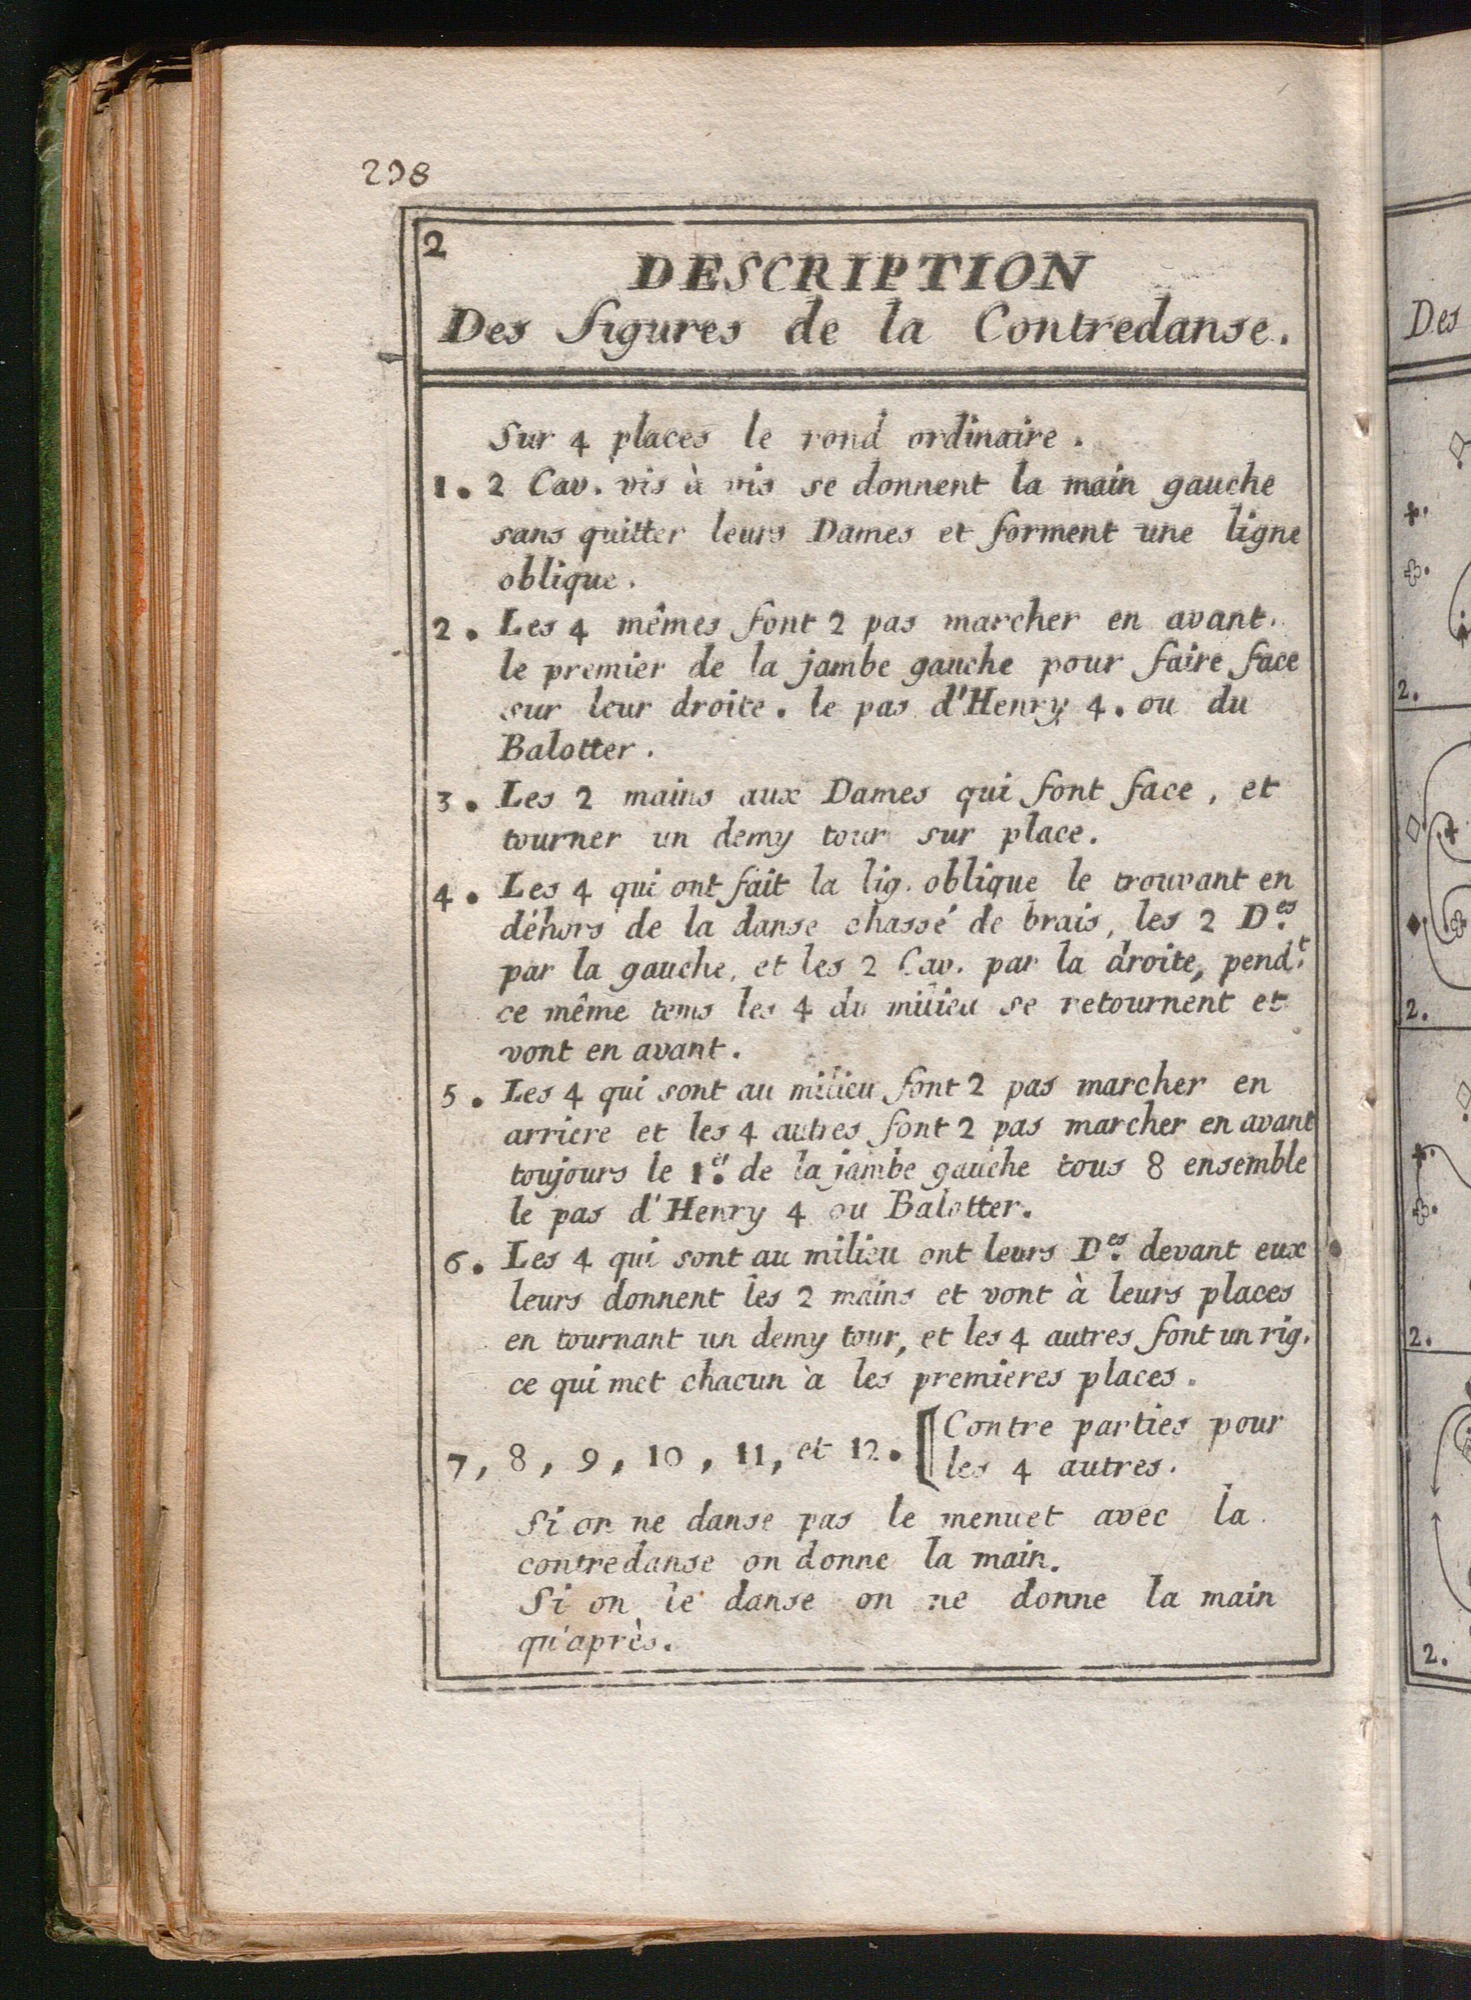 298
2
DESCRIPTION
Des figures de la Contredanse.
Sur 4 places le rond ordinaire.
1. 2 Cav. vis à vis se donnent la main gauche
sans quitter leurs Dames et forment une ligne
oblique.
2. Les 4 mêmes font 2 pas marcher en avant.
le premier de la jambe gauche pour faire face
sur leur droite. le pas d'Henry 4. ou du
Balotter.
3. Les 2 mains aux Dames qui font face, et
tourner un demy tour sur place.
4. Les 4 qui ont fait la lig. oblique le trouvant en
déhors de la danse chassé de brais, les 2 D.es
par la gauche, et les 2 Cav. par la droite, pend.t
ce même tems les 4 du milieu se retournent et
vont en avant.
5. Les 4 qui sont au milieu font 2 pas marcher en
arriere et les 4 autres font 2 pas marcher en avant
toujours le 1.er de la jambe gauche tous 8 ensemble
le pas d'Henry 4 ou Balotter.
6. Les 4 qui sont au milieu ont leurs D.es devant eux
leurs donnent les 2 mains et vont à leurs places
en tournant un demy tour, et les 4 autres font un rig.
ce qui met chacun à les premieres places.
7, 8, 9, 10, 11, et 12. [Contre parties pour
les 4 autres.
Si on ne danse pas le menuet avec la
contredanse on donne la main.
Si on le danse on ne donne la main
qu'après.
Des
2.
2.
2.
2.